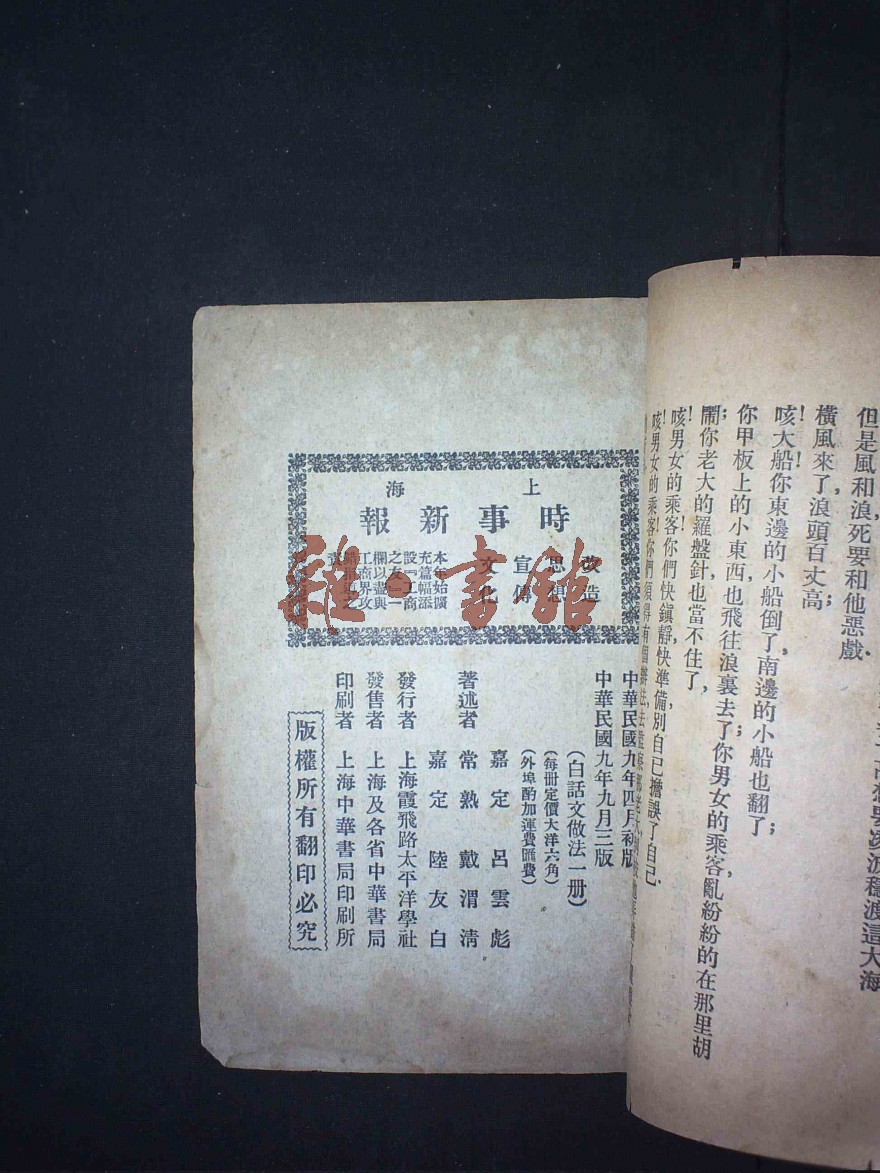 但是風和浪死要和他惡戲.
橫風來了浪頭百丈高
咳大船你東邊的小船倒了南邊的小船也翻了;
你甲板上的小東西也飛往浪裏去了你男女的乘客亂紛紛的在那里胡
鬧;你老大的羅盤針也當不住了,
咳!男女的乘客!你們快鎭靜,快準備,別自己擔誤了自己.
上海
時事新報
改造
思想
宣傳
文化
本年始擴
充篇幅添
設工商
之友一
欄以盡與
工商界攻
中華民國九年四月初版
中華民國九年九月三版
(白話文做法一册)
(每册定價大洋六角)
(外埠酌加運費匯費)
著述者 嘉定 呂雲彪
常熟 戴渭清
嘉定 陸友白
發行者 上海霞飛路太平洋學社
發售者 上海及各省中華書局
印刷者 上海中華書局印刷所
版權所有翻印必究
雜·書館